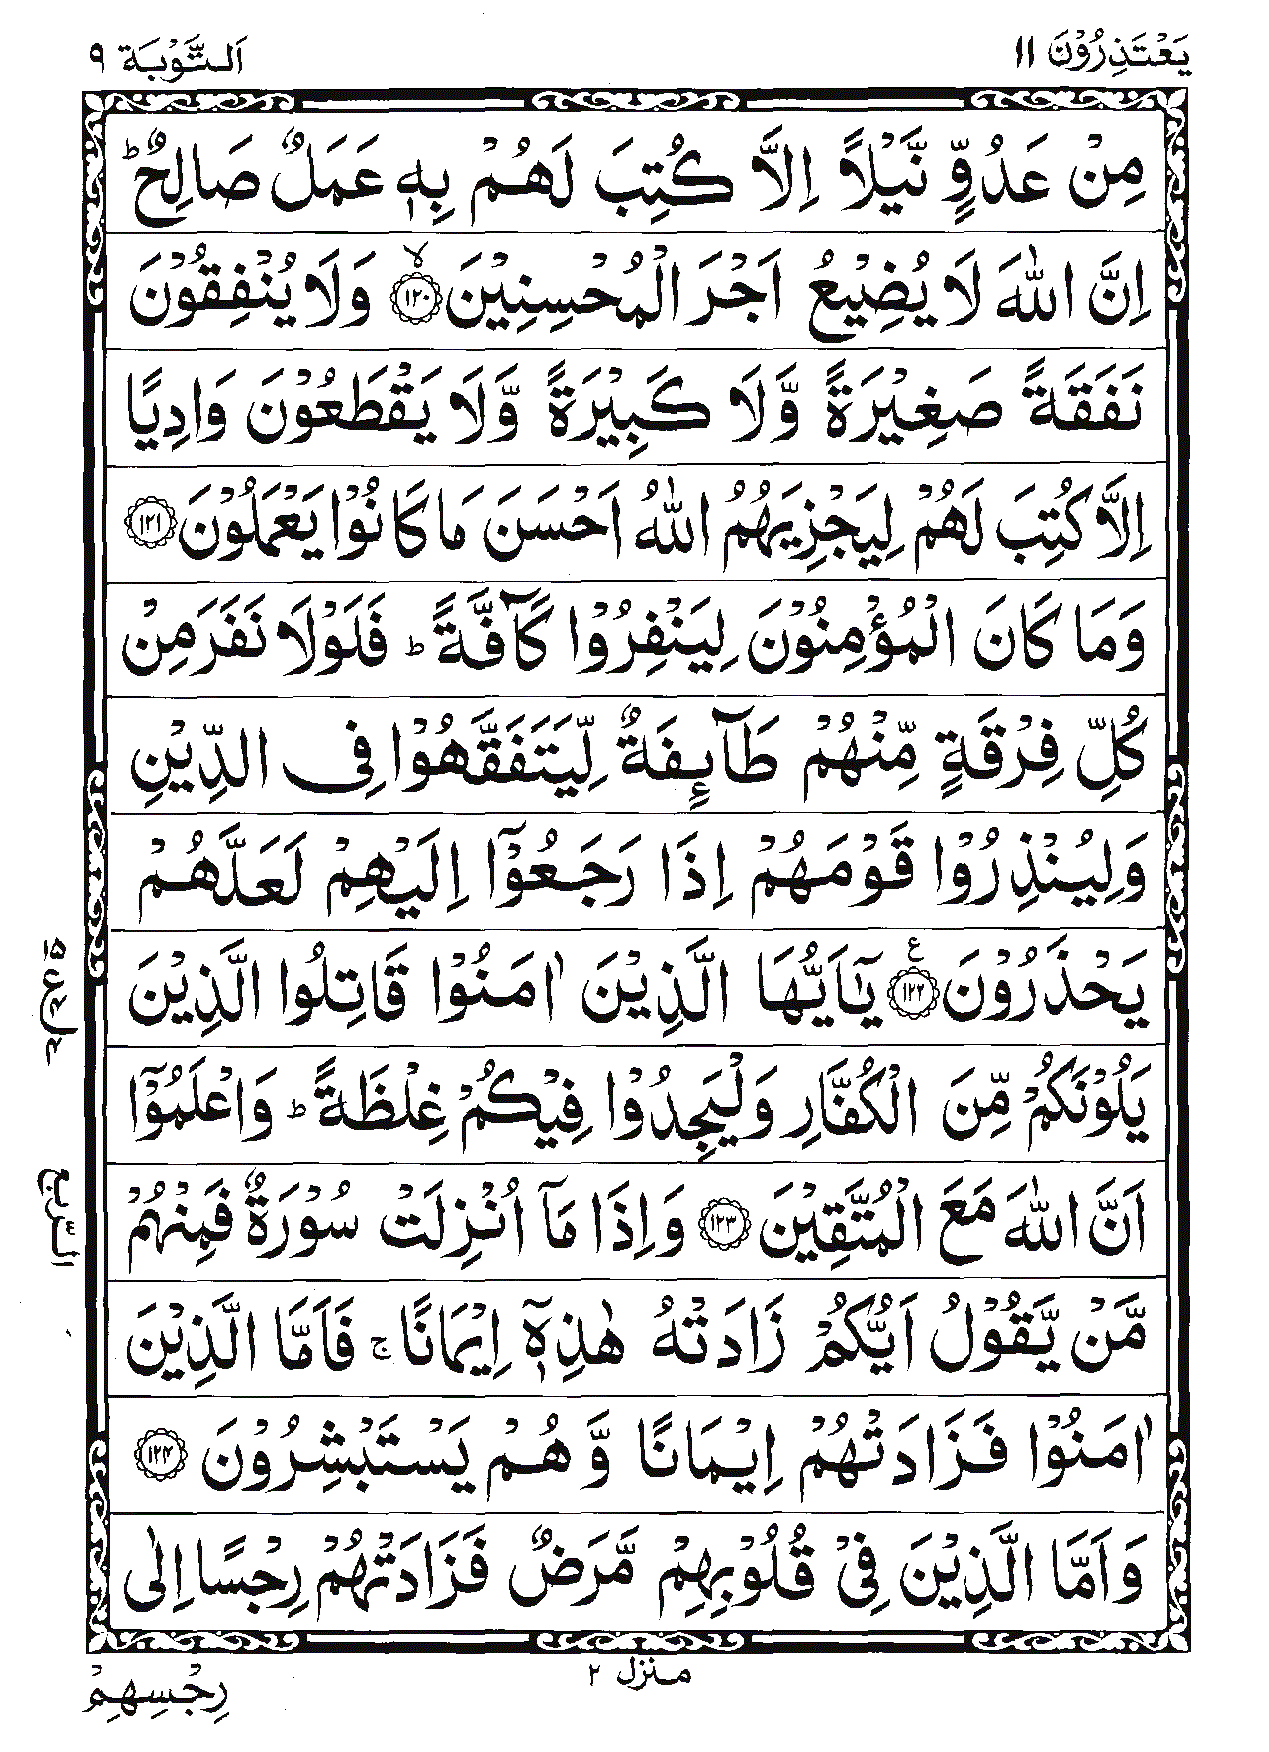 يَعْتَذِرُوْنَ ١١
اَلتَّوْبَة ٩
مِنْ عَدُوٍّ نَّيْلًا اِلَّا كُتِبَ لَهُمْ بِهٖ عَمَلٌ صَالِحٌ ؕ
اِنَّ اللّٰهَ لَا يُضِيْعُ اَجْرَ الْمُحْسِنِيْنَ ۙ﴿١٢٠﴾ وَلَا يُنْفِقُوْنَ
نَفَقَةً صَغِيْرَةً وَّلَا كَبِيْرَةً وَّلَا يَقْطَعُوْنَ وَادِيًا
اِلَّا كُتِبَ لَهُمْ لِيَجْزِيَهُمُ اللّٰهُ اَحْسَنَ مَا كَانُوْا يَعْمَلُوْنَ ﴿١٢١﴾
وَمَا كَانَ الْمُؤْمِنُوْنَ لِيَنْفِرُوْا كَآفَّةً ؕ فَلَوْلَا نَفَرَ مِنْ
كُلِّ فِرْقَةٍ مِّنْهُمْ طَآئِفَةٌ لِّيَتَفَقَّهُوْا فِى الدِّيْنِ
وَلِيُنْذِرُوْا قَوْمَهُمْ اِذَا رَجَعُوْۤا اِلَيْهِمْ لَعَلَّهُمْ
يَحْذَرُوْنَ ﴿١٢٢﴾ ع يٰۤاَيُّهَا الَّذِيْنَ اٰمَنُوْا قَاتِلُوا الَّذِيْنَ
يَلُوْنَكُمْ مِّنَ الْكُفَّارِ وَلْيَجِدُوْا فِيْكُمْ غِلْظَةً ؕ وَاعْلَمُوْۤا
اَنَّ اللّٰهَ مَعَ الْمُتَّقِيْنَ ﴿١٢٣﴾ وَاِذَا مَاۤ اُنْزِلَتْ سُوْرَةٌ فَمِنْهُمْ
مَّنْ يَّقُوْلُ اَيُّكُمْ زَادَتْهُ هٰذِهٖۤ اِيْمَانًا ۚ فَاَمَّا الَّذِيْنَ
اٰمَنُوْا فَزَادَتْهُمْ اِيْمَانًا وَّهُمْ يَسْتَبْشِرُوْنَ ﴿١٢٤﴾
وَاَمَّا الَّذِيْنَ فِىْ قُلُوْبِهِمْ مَّرَضٌ فَزَادَتْهُمْ رِجْسًا اِلٰى
الرّبع
منزل ٢
رِجْسِهِمْ